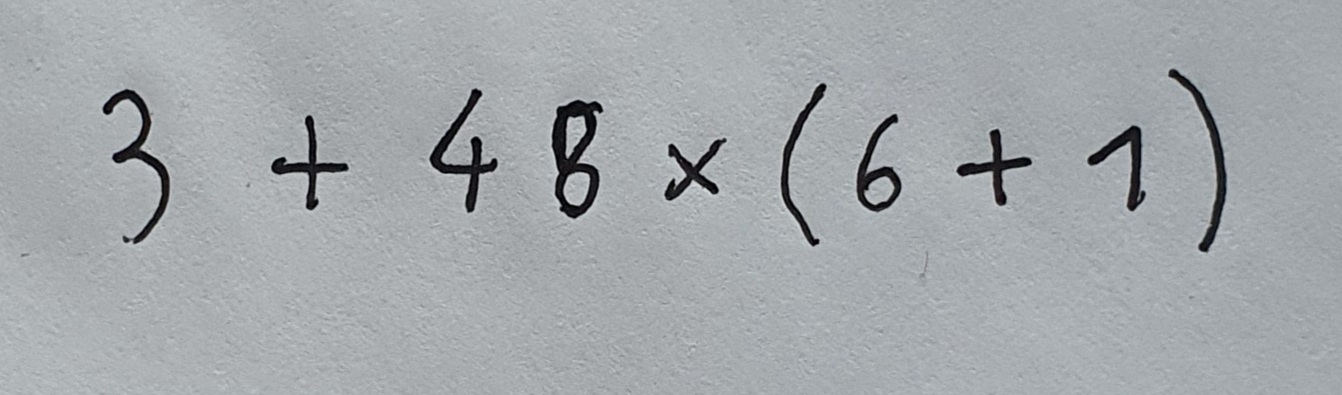 3 + 48 × (6 + 1)